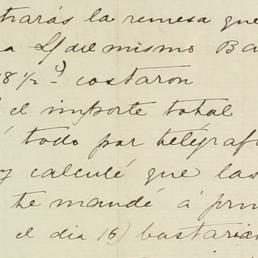 trarás la remesa que
a L/ del mismo Ba
8 1/2 d costaron
el importe total
é todo por telégraf
y calculé que las
te mandé á prin
el dia 16) bastaria